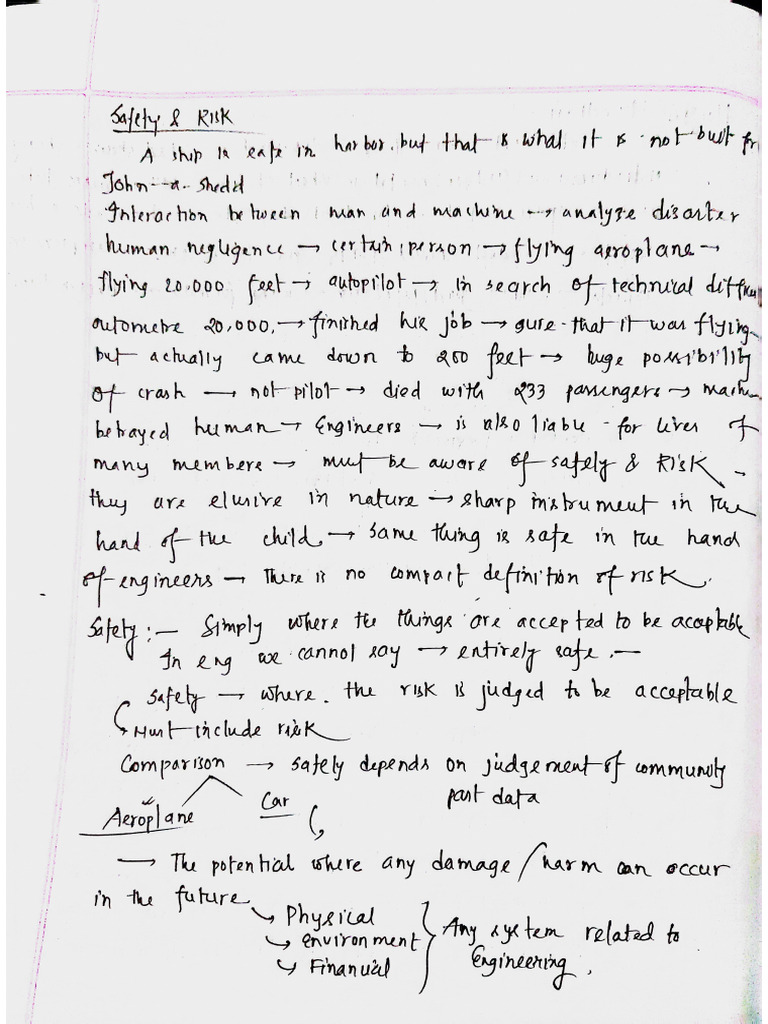 Safety & RISK
A ship is safe in harbor. but that is what it is not built for
John - a. Shedd
Interaction between man and machine → analyze disaster
human negligence → certain person → flying aeroplane →
flying 20.000 feet → autopilot → in search of technical
20,000, → finished his job → sure that it was flying
but actually came down to 200 feet → huge possibility
of crash → not pilot → died with 233 passengers →
betrayed human → Engineers → is also liable for lives of
many members → must be aware of safety & RISK →
they are elusive in nature → sharp instrument in the
hand of the child → same thing is safe in the hand
of engineers → There is no compact definition of risk.
Safety :- Simply where the things are accepted to be acceptable
In eng we cannot say → entirely safe . —
Safety → where . the risk is judged to be acceptable
→ Must include risk
Comparison → safety depends on judgement of community
past data
Aeroplane Car
→ The potential where any damage / harm can occur
in the future
→ Physical
→ environment
→ Financial
Any system related to
Engineering .